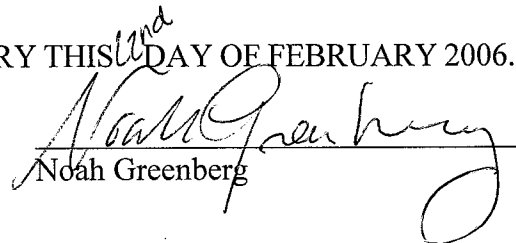 RY THIS 22nd DAY OF FEBRUARY 2006.
Noah Greenberg
Noah Greenberg